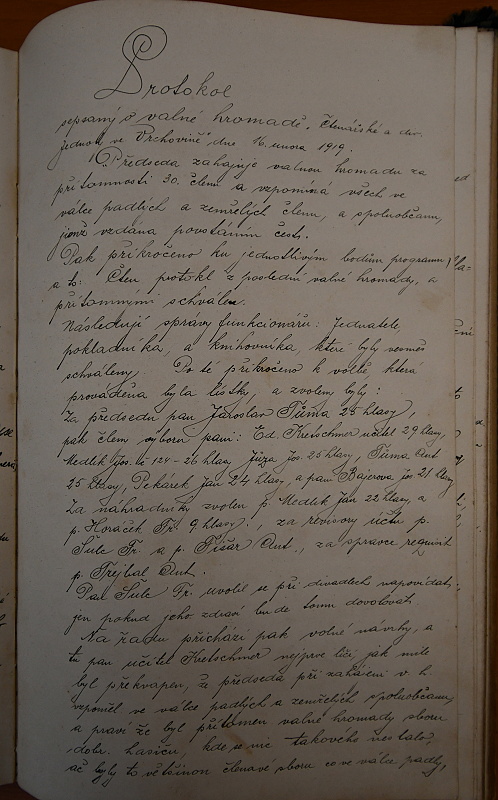 Protokol
sepsaný o valné hromadě, čtenářské a div.
Jednoty ve Vrchovině, dne 16. února 1919.
Předseda zahajuje valnou hromadu za
přítomnosti 30. členů a vzpomíná všech ve
válce padlých a zemřelých členů, a spoluobčanů,
jimž vzdána povstáním čest.
Pak přikročeno ku jednotlivým bodům programu
a to: Čten protokol z poslední valné hromady, a
přítomnými schválen.
Následují správy funkcionářů: Jednatele,
pokladníka, a knihovníka, které byly vesměs
schváleny. Po té přikročeno k volbě, která
prováděna byla lístky, a zvoleny byly:
Za předsedu pan Jaroslav Tůma 25 hlasy,
pak člen. výboru paní: Ed. Kretschmer učitel 29 hlasy,
Medlík Jos. č 124 - 26 hlasy, Jůza Jos. 25 hlasy, Tůma Ant
25 hlasy, Pekárek Jan 24 hlasy, a paní Bajerova jos 21 hlasy
Za náhradníky zvolen p. Medlík Jan 22 hlasy, a
p. Horáček Fr. 9 hlasy, za revisory účtů p.
Šůle Fr. a p. Fišar Ant., za správce requisit
p. Trejbal Ant.
Pan Šůle Fr. uvolil se při divadlech napovídati
jen pokud jeho zdraví bude tomu dovolovati
Na řadu přichází pak volné návrhy, a
tu pan učitel Kretschmer nejprve líčí, jak mile
byl překvapen, že předseda při zahájení v. h.
vzpoměl ve válce padlých a zemřelých spoluobčanů,
a praví že byl přítomen valné hromady sboru
dobr. hasičů, kde se nic takového nestalo,
ač byly to většinou členové sboru co ve válce padly,